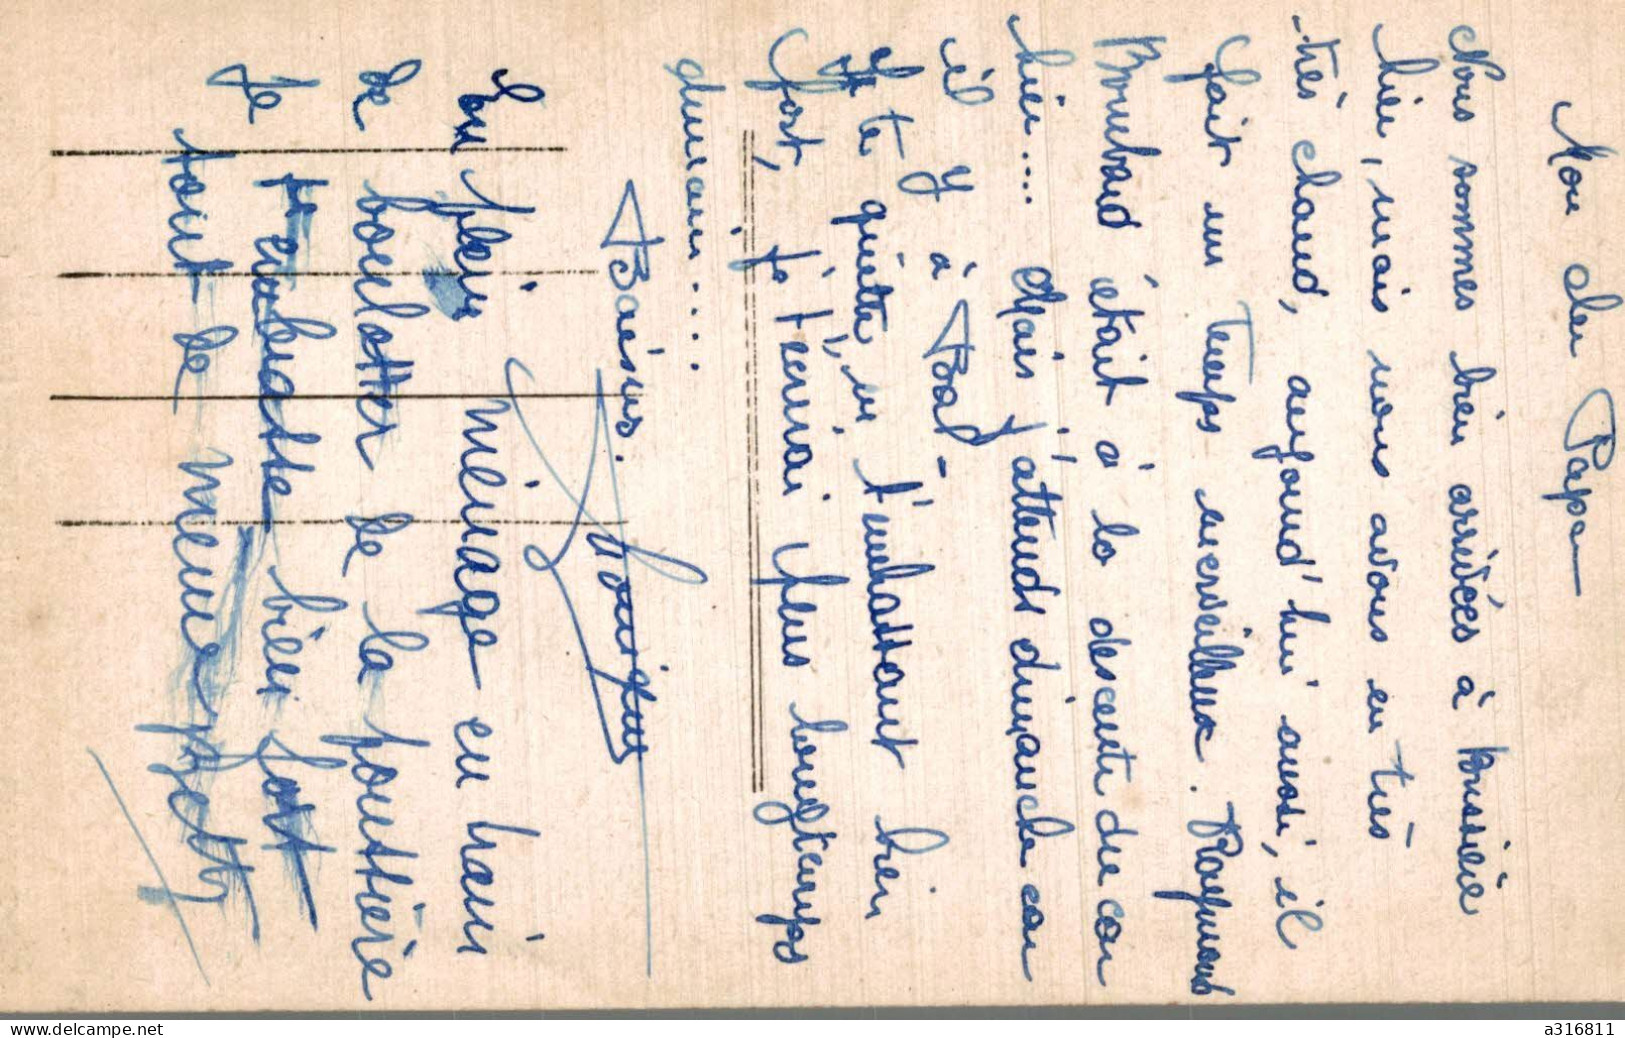 Mon cher Papa
Nous sommes bien arrivées à Bussière
hier, mais nous avons eu très
très chaud, aujourd'hui aussi, il
fait un temps merveilleux. Raymond
Bombard était à la descente du car
hier.... Mais j'attends dimanche car
il y à Bal-
Je te quitte, en t'embrassant bien
fort, je t'écrirai plus longtemps
demain....
Baisers.
En plein ménage en train
de boulotter de la poussière
je t'embrasse bien fort
tout de meme
delcampe.net
a316811